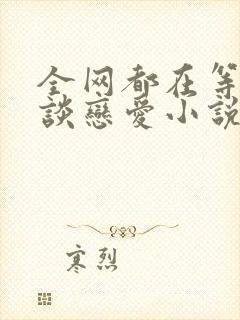 全网都在等
談戀愛小説
寒烈